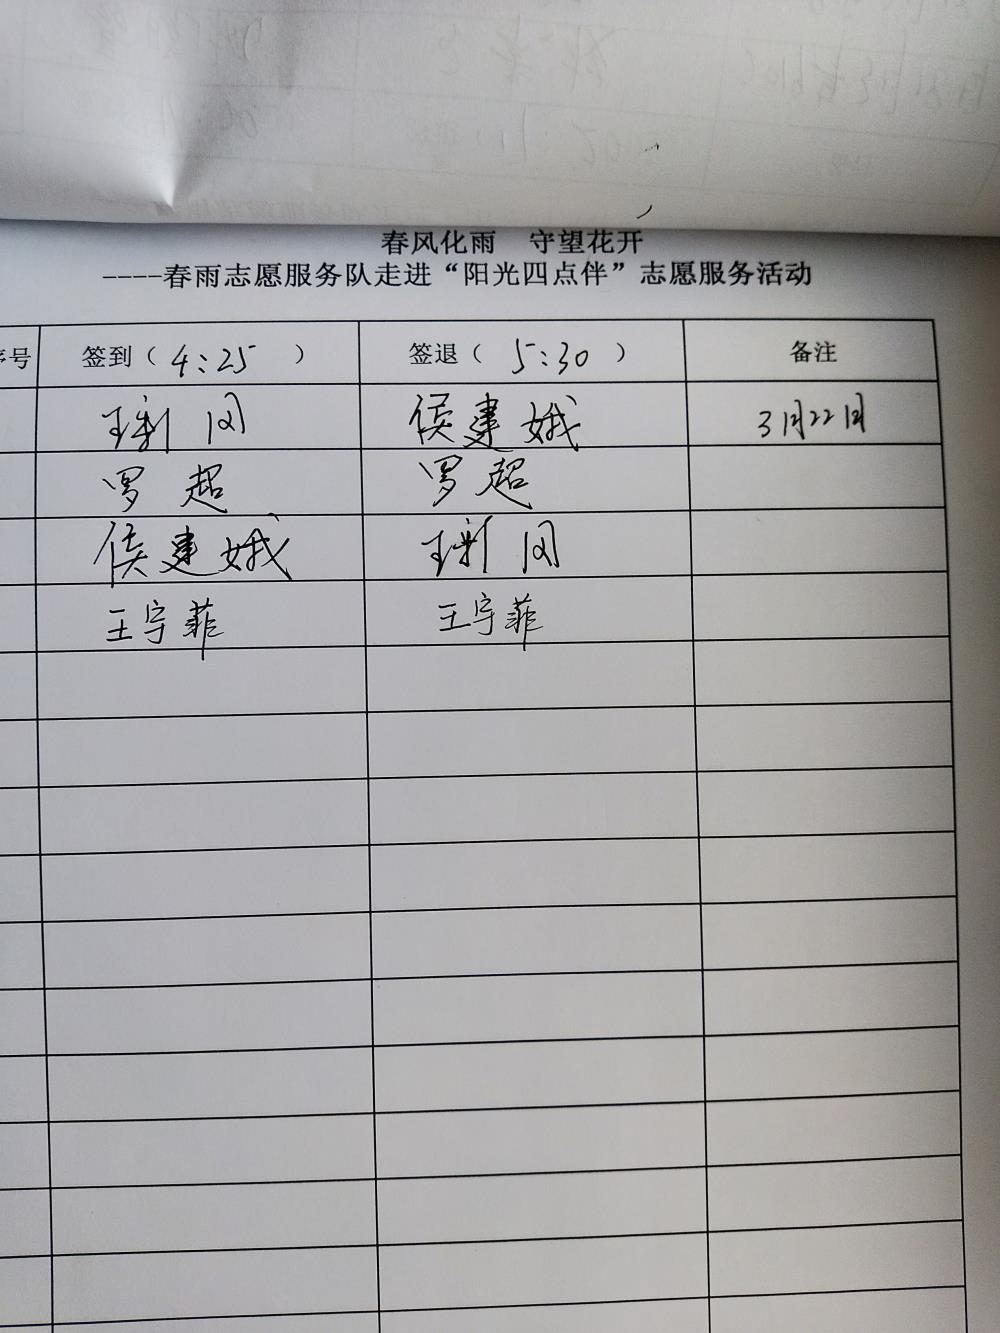 春风化雨 守望花开
----春雨志愿服务队走进“阳光四点伴”志愿服务活动
序号 签到（4:25） 签退（5:30） 备注
王 侯建娥 3月22日
罗超 罗超
侯建娥 王
王宇菲 王宇菲